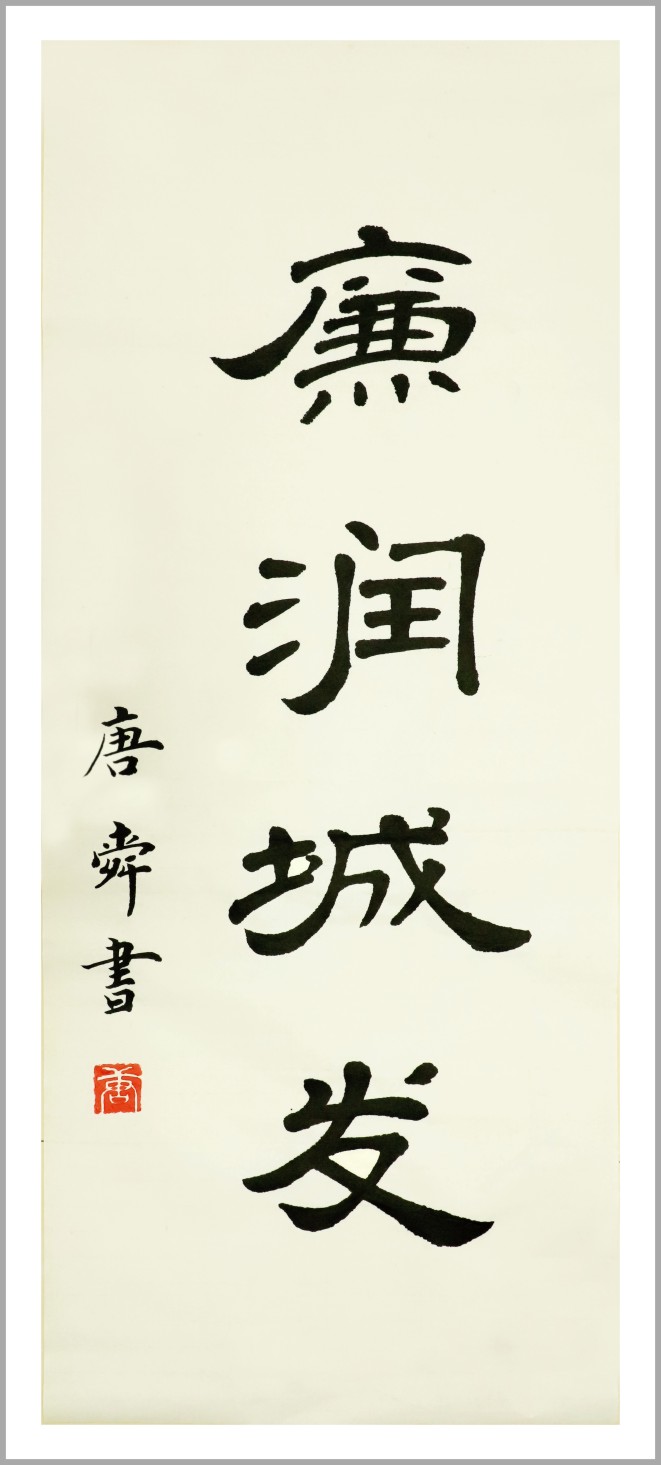 廉润城发
唐舜書
唐